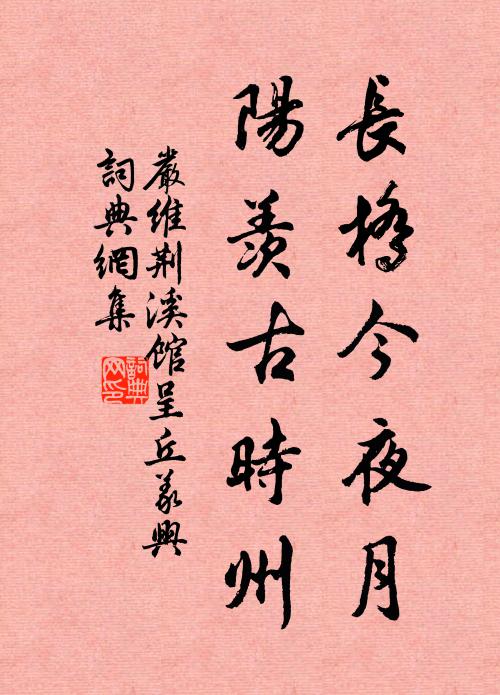 長橋今夜月
陽羨古時州
嚴維荆溪館呈丘義興
詞典網集
詞典網印